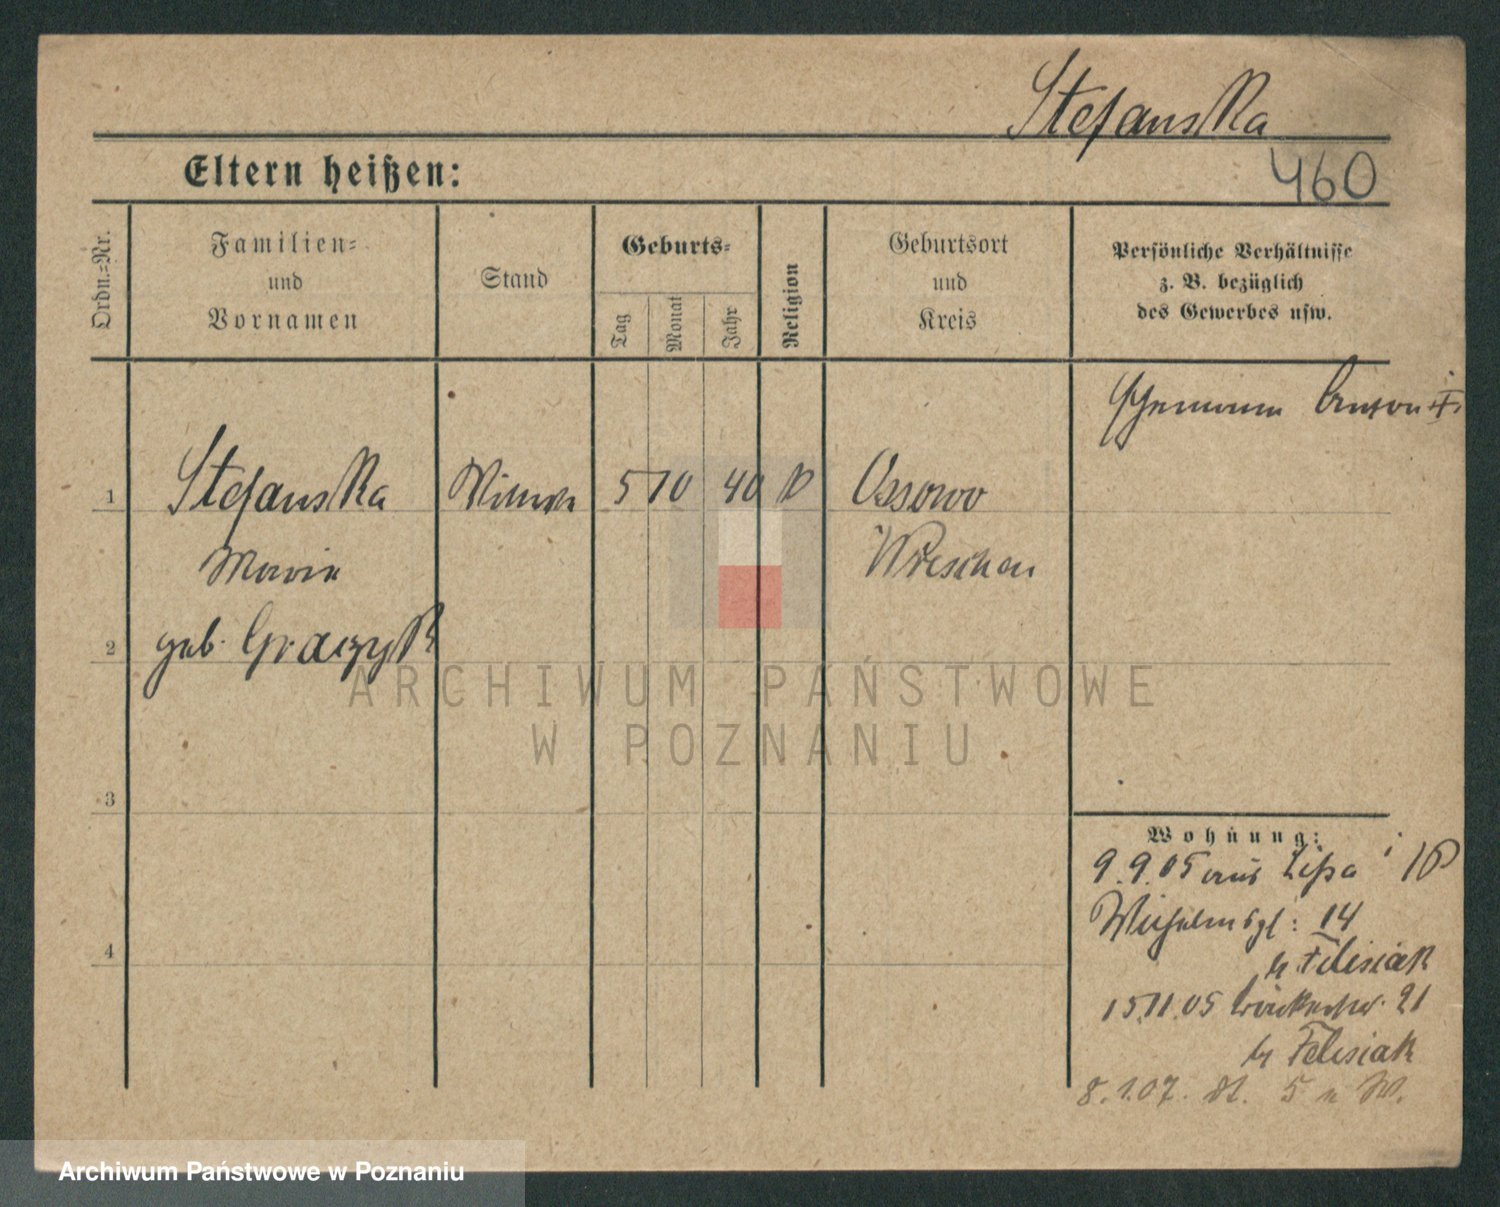 Stefanska
460
Eltern heißen:
Ordn.=Nr.
Familien=
und
Vornamen
Stand
Geburts=
Tag
Monat
Jahr
Religion
Geburtsort
und
Kreis
Persönliche Verhältnisse
z. B. bezüglich
des Gewerbes usw.
1
Stefanska
Wittwe
5
10
40
k
Ossowo
Maria
Wreschen
2
geb. Graczyk
ARCHIWUM PAŃSTWOWE
W POZNANIU
3
Wohnung:
9.9.05 aus Lissa i/P
Wilhelmspl: 14
b/ Felisiak
4
15.11.05 21
b/ Felisiak
8.1.07. 5 n W.
Archiwum Państwowe w Poznaniu